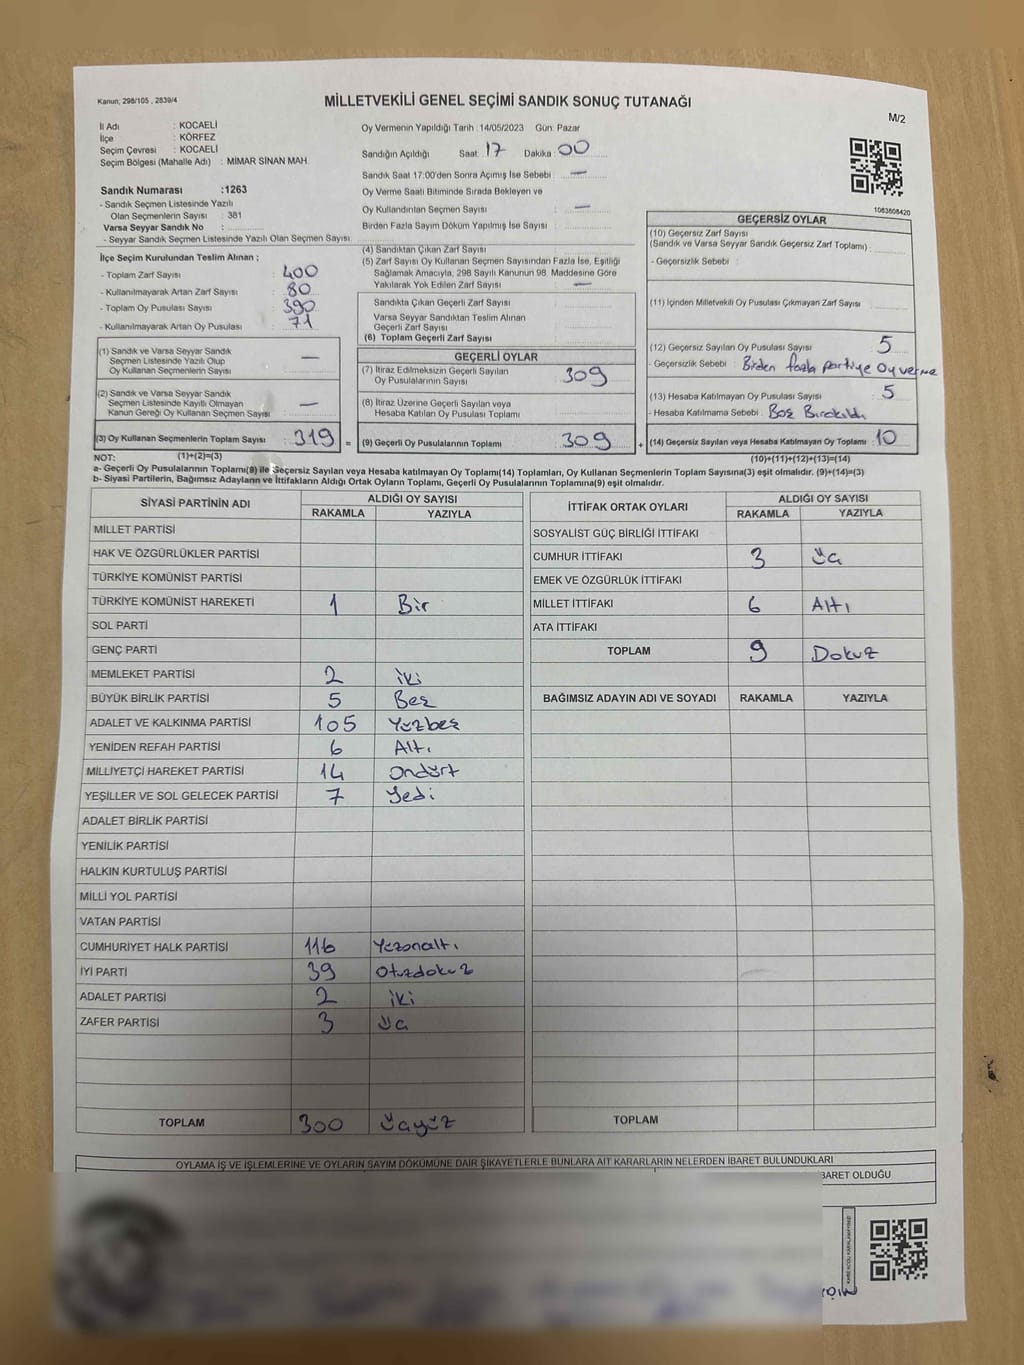 Kanun, 298/105 , 2839/4
MİLLETVEKİLİ GENEL SEÇİMİ SANDIK SONUÇ TUTANAĞI
M/2
İl Adı : KOCAELİ
İlçe : KÖRFEZ
Seçim Çevresi : KOCAELİ
Seçim Bölgesi (Mahalle Adı) : MİMAR SİNAN MAH.
Sandık Numarası :1263
- Sandık Seçmen Listesinde Yazılı
Olan Seçmenlerin Sayısı : 381
Varsa Seyyar Sandık No :
- Seyyar Sandık Seçmen Listesinde Yazılı Olan Seçmen Sayısı:
İlçe Seçim Kurulundan Teslim Alınan ;
- Toplam Zarf Sayısı : 400
- Kullanılmayarak Artan Zarf Sayısı : 80
- Toplam Oy Pusulası Sayısı : 390
- Kullanılmayarak Artan Oy Pusulası : 71
(1) Sandık ve Varsa Seyyar Sandık
Seçmen Listesinde Yazılı Olup
Oy Kullanan Seçmenlerin Sayısı : —
(2) Sandık ve Varsa Seyyar Sandık
Seçmen Listesinde Kayıtlı Olmayan
Kanun Gereği Oy Kullanan Seçmen Sayısı : —
(3) Oy Kullanan Seçmenlerin Toplam Sayısı : 319 =
Oy Vermenin Yapıldığı Tarih : 14/05/2023 Gün: Pazar
Sandığın Açıldığı Saat: 17 Dakika : 00
Sandık Saat 17:00'den Sonra Açımış İse Sebebi : —
Oy Verme Saati Bitiminde Sırada Bekleyen ve
Oy Kullandırılan Seçmen Sayısı : —
Birden Fazla Sayım Döküm Yapılmış İse Sayısı :
(4) Sandıktan Çıkan Zarf Sayısı :
(5) Zarf Sayısı Oy Kullanan Seçmen Sayısından Fazla İse, Eşitliği
Sağlamak Amacıyla, 298 Sayılı Kanunun 98. Maddesine Göre
Yakılarak Yok Edilen Zarf Sayısı : —
Sandıkta Çıkan Geçerli Zarf Sayısı :
Varsa Seyyar Sandıktan Teslim Alınan
Geçerli Zarf Sayısı :
(6) Toplam Geçerli Zarf Sayısı :
GEÇERLİ OYLAR
(7) İtiraz Edilmeksizin Geçerli Sayılan
Oy Pusulalarının Sayısı : 309
(8) İtiraz Üzerine Geçerli Sayılan veya
Hesaba Katılan Oy Pusulası Toplamı :
(9) Geçerli Oy Pusulalarının Toplamı : 309 +
1083808420
GEÇERSİZ OYLAR
(10) Geçersiz Zarf Sayısı
(Sandık ve Varsa Seyyar Sandık Geçersiz Zarf Toplamı) :
- Geçersizlik Sebebi :
(11) İçinden Milletvekili Oy Pusulası Çıkmayan Zarf Sayısı :
(12) Geçersiz Sayılan Oy Pusulası Sayısı : 5
- Geçersizlik Sebebi : Birden fazla partiye oy verme
(13) Hesaba Katılmayan Oy Pusulası Sayısı : 5
- Hesaba Katılmama Sebebi : Boş Bırakıldı
(14) Geçersiz Sayılan veya Hesaba Katılmayan Oy Toplamı : 10
NOT: (1)+(2)=(3) (10)+(11)+(12)+(13)=(14)
a- Geçerli Oy Pusulalarının Toplamı(9) ile Geçersiz Sayılan veya Hesaba katılmayan Oy Toplamı(14) Toplamları, Oy Kullanan Seçmenlerin Toplam Sayısına(3) eşit olmalıdır. (9)+(14)=(3)
b- Siyasi Partilerin, Bağımsız Adayların ve İttifakların Aldığı Ortak Oyların Toplamı, Geçerli Oy Pusulalarının Toplamına(9) eşit olmalıdır.
SİYASİ PARTİNİN ADI ALDIĞI OY SAYISI
RAKAMLA YAZIYLA
MİLLET PARTİSİ
HAK VE ÖZGÜRLÜKLER PARTİSİ
TÜRKİYE KOMÜNİST PARTİSİ
TÜRKİYE KOMÜNİST HAREKETİ 1 Bir
SOL PARTİ
GENÇ PARTİ
MEMLEKET PARTİSİ 2 iki
BÜYÜK BİRLİK PARTİSİ 5 Beş
ADALET VE KALKINMA PARTİSİ 105 Yüzbeş
YENİDEN REFAH PARTİSİ 6 Altı
MİLLİYETÇİ HAREKET PARTİSİ 14 Ondört
YEŞİLLER VE SOL GELECEK PARTİSİ 7 Yedi
ADALET BİRLİK PARTİSİ
YENİLİK PARTİSİ
HALKIN KURTULUŞ PARTİSİ
MİLLİ YOL PARTİSİ
VATAN PARTİSİ
CUMHURİYET HALK PARTİSİ 116 Yüzonaltı
İYİ PARTİ 39 Otuzdokuz
ADALET PARTİSİ 2 iki
ZAFER PARTİSİ 3 Üç
TOPLAM 300 Üçyüz
İTTİFAK ORTAK OYLARI ALDIĞI OY SAYISI
RAKAMLA YAZIYLA
SOSYALİST GÜÇ BİRLİĞİ İTTİFAKI
CUMHUR İTTİFAKI 3 Üç
EMEK VE ÖZGÜRLÜK İTTİFAKI
MİLLET İTTİFAKI 6 Altı
ATA İTTİFAKI
TOPLAM 9 Dokuz
BAĞIMSIZ ADAYIN ADI VE SOYADI RAKAMLA YAZIYLA
TOPLAM
OYLAMA İŞ VE İŞLEMLERİNE VE OYLARIN SAYIM DÖKÜMÜNE DAİR ŞİKAYETLERLE BUNLARA AİT KARARLARIN NELERDEN İBARET BULUNDUKLARI
BARET OLDUĞU